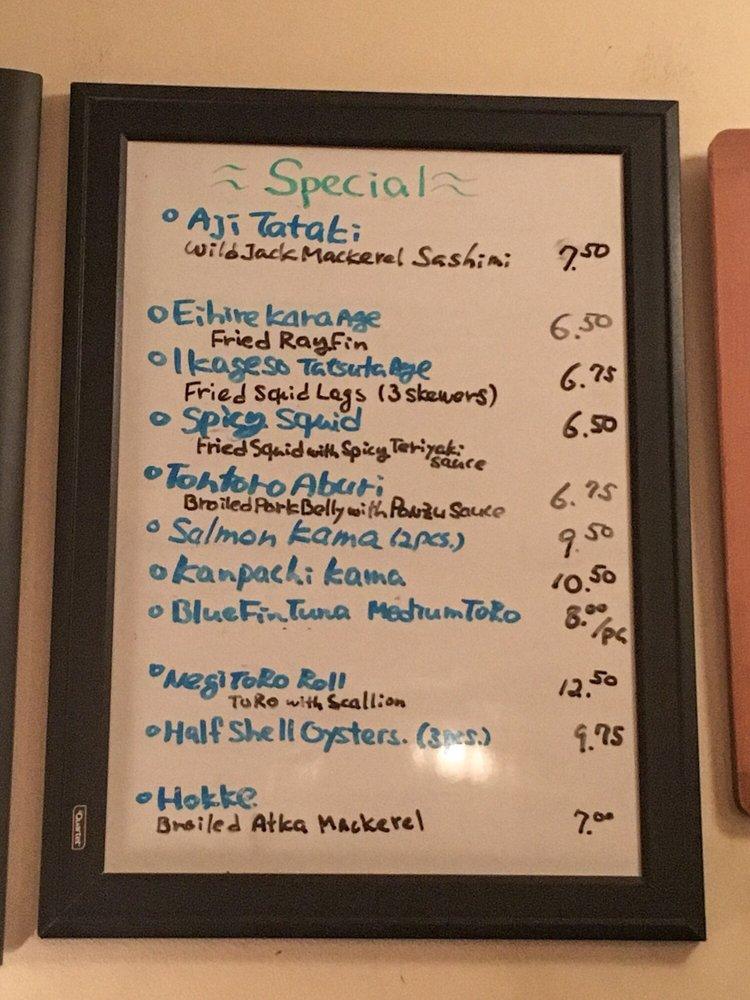 ≈ Special ≈
○ Aji Tataki
Wild Jack Mackerel Sashimi 7.50
○ Eihire Kara Age 6.50
Fried Ray Fin
○ Ikageso Tatsuta Age 6.75
Fried Squid Legs (3 skewers)
○ Spicy Squid 6.50
Fried Squid with Spicy Teriyaki
sauce
○ Tontoro Aburi 6.75
Broiled Pork Belly with Ponzu Sauce
○ Salmon Kama (2pcs.) 9.50
○ Kanpachi Kama 10.50
○ Blue Fin Tuna Medium Toro 8.00
/pc
○ Negi Toro Roll 12.50
Toro with Scallion
○ Half Shell Oysters. (3pcs.) 9.75
○ Hokke
Broiled Atka Mackerel 7.00
Quartet